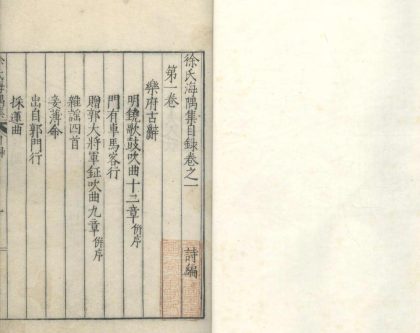 徐氏海隅集目録卷之一　詩編
第一卷
樂府古辭
明鐃歌鼓吹曲十二章併序
門有車馬客行
贈郭大將軍鉦吹曲九章併序
雜謡四首
妾薄命
出自郭門行
採蓮曲